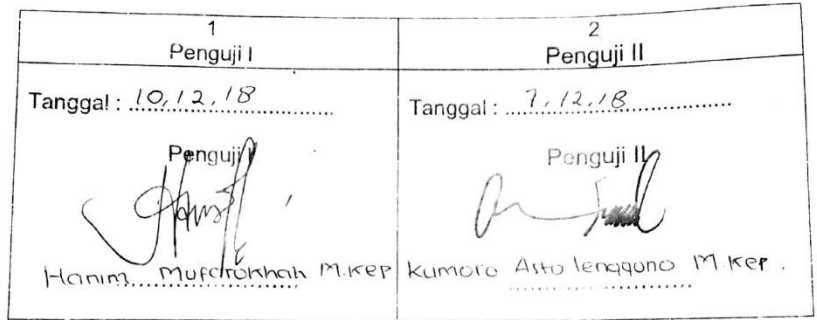 1
Penguji I
Tanggal : 10,12,18
Penguji I
Hanim Mufarokhah M.Kep
2
Penguji II
Tanggal : 7,12,18
Penguji II
Kumoro Asto lenggono M.Kep.